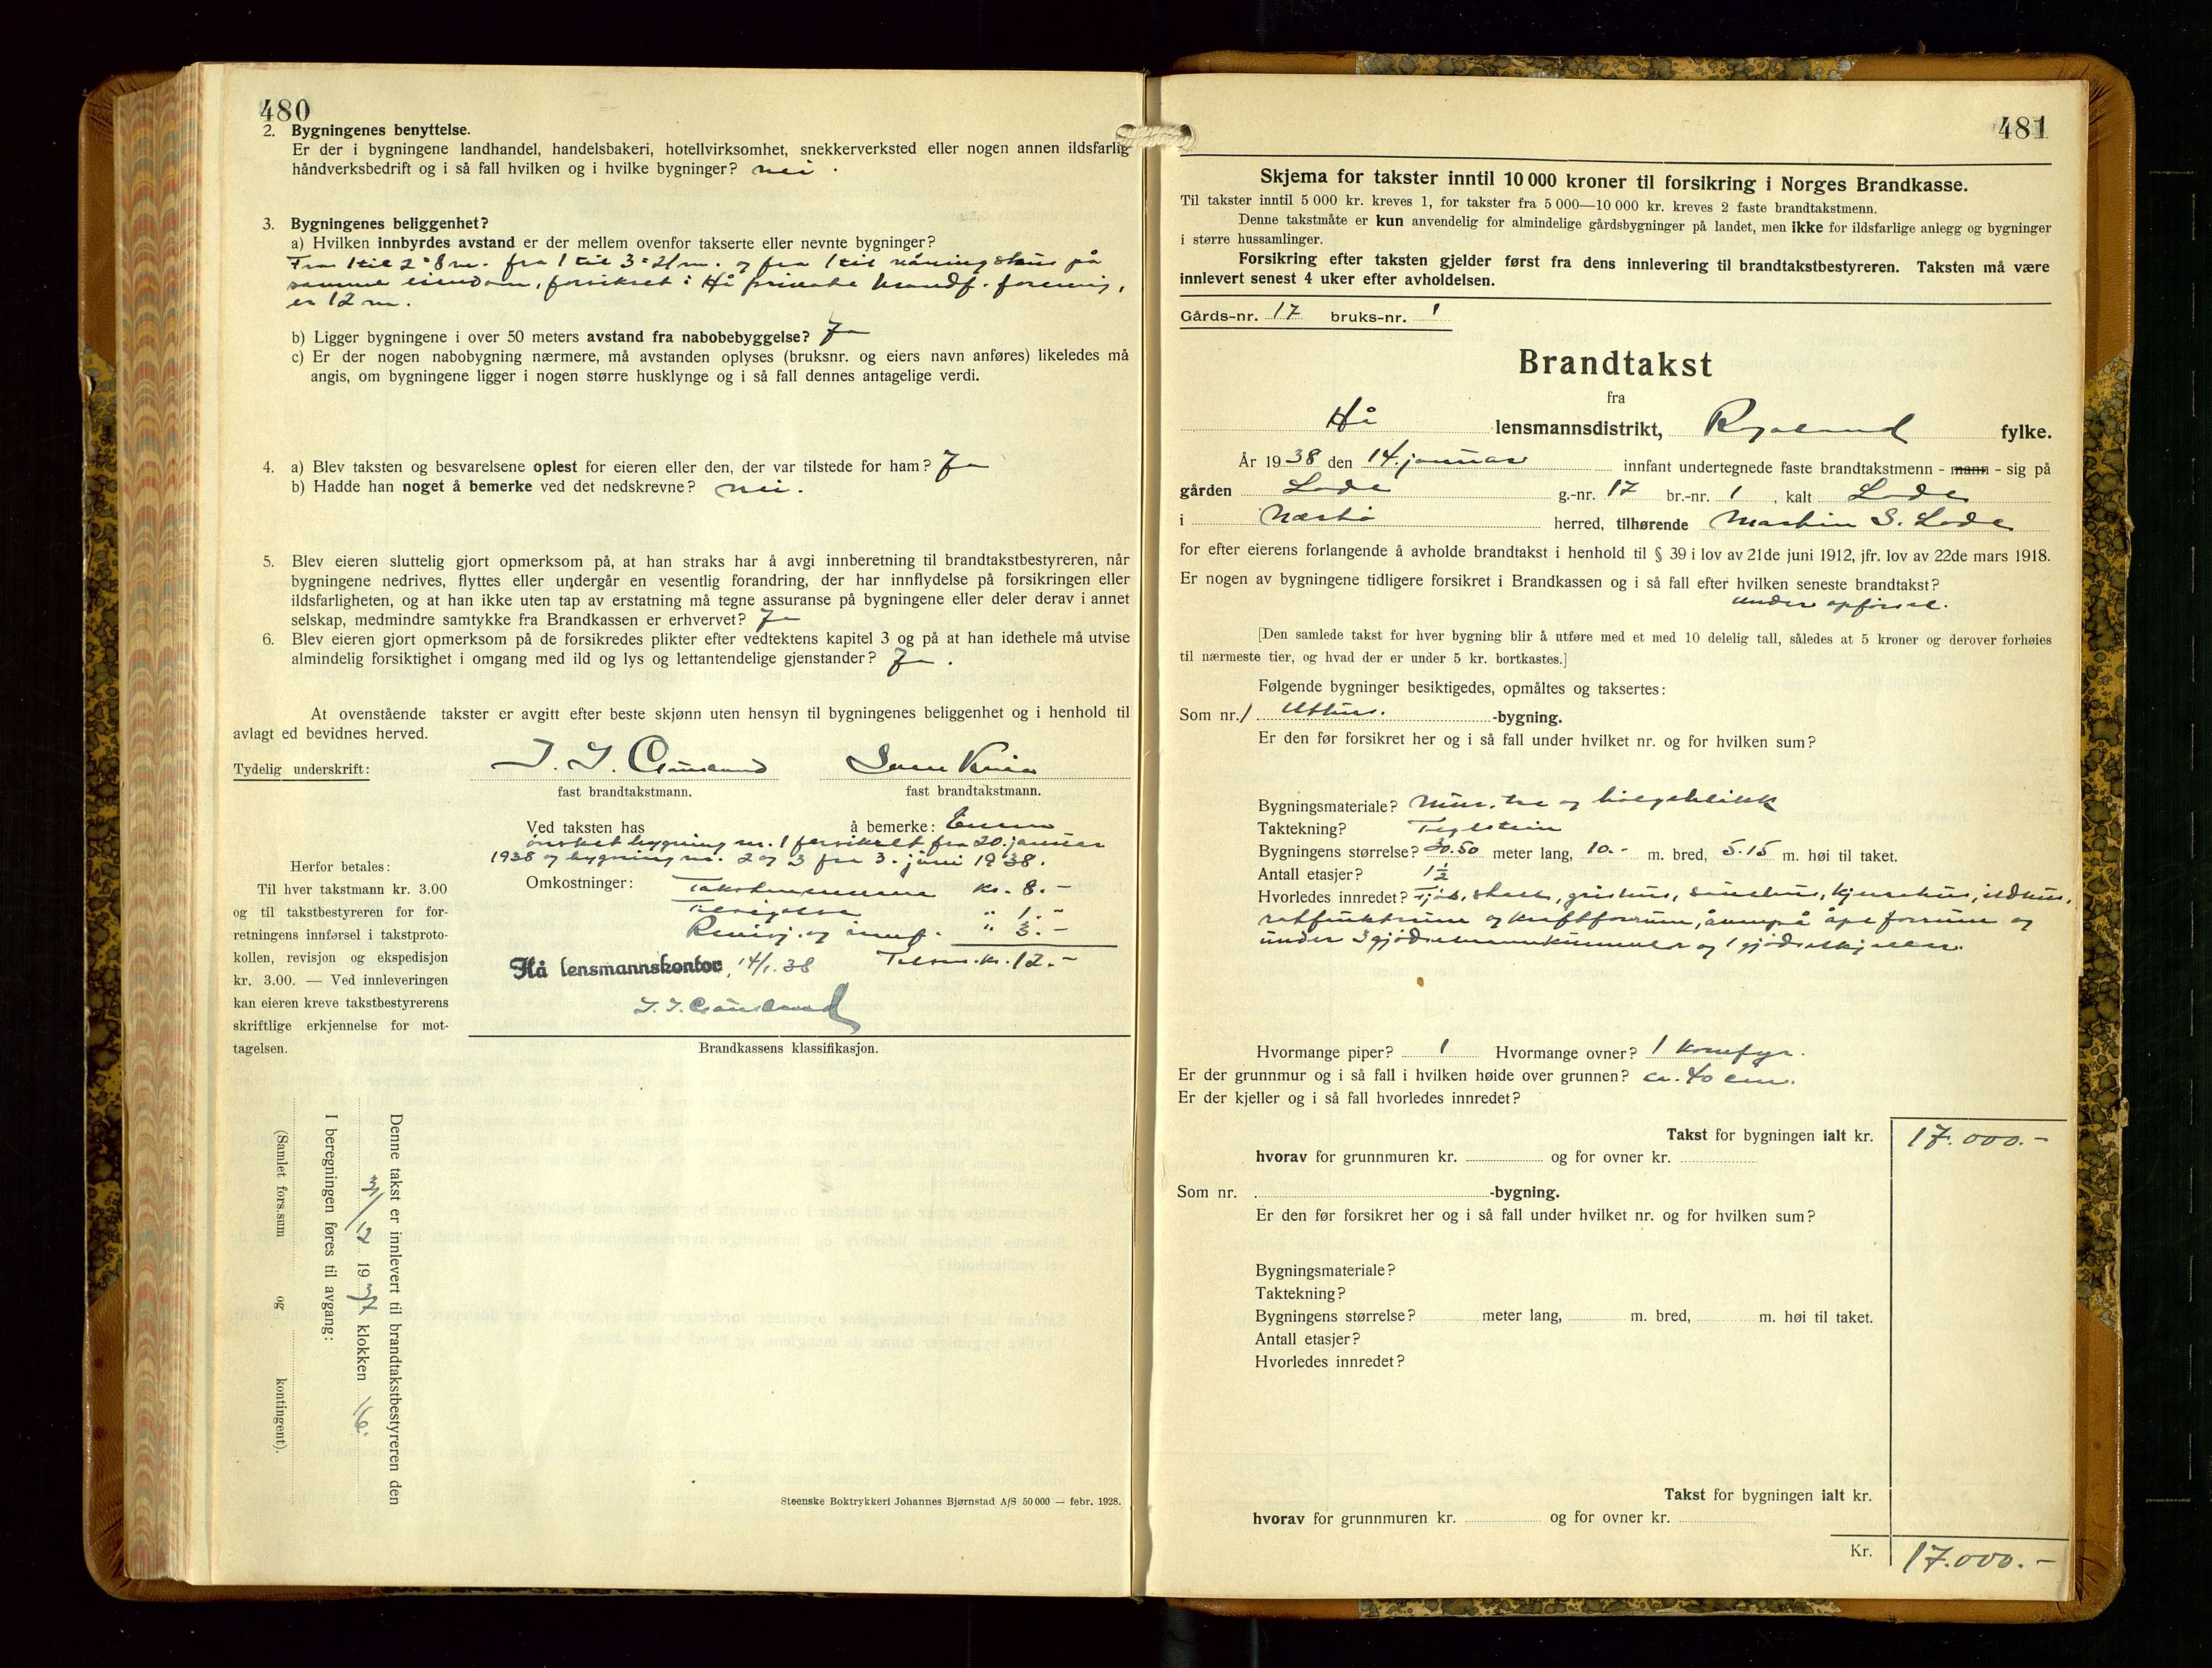 480
2. Bygningenes benyttelse.
Er der i bygningene landhandel, handelsbakeri, hotellvirksomhet, snekkerverksted eller nogen annen ildsfarlig
håndverksbedrift og i så fall hvilken og i hvilke bygninger? nei.
3. Bygningenes beliggenhet?
a) Hvilken innbyrdes avstand er der mellem ovenfor takserte eller nevnte bygninger?
Fra 1 til 2 = 8 m. fra 1 til 3 = 21 m. og fra 1 til våningshus på
samme eiendom, forsikret i Hå private brandf. forening,
er 12 m.
b) Ligger bygningene i over 50 meters avstand fra nabobebyggelse? Ja
c) Er der nogen nabobygning nærmere, må avstanden oplyses (bruksnr. og eiers navn anføres) likeledes må
angis, om bygningene ligger i nogen større husklynge og i så fall dennes antagelige verdi.
4. a) Blev taksten og besvarelsene oplest for eieren eller den, der var tilstede for ham? Ja
b) Hadde han noget å bemerke ved det nedskrevne? nei.
5. Blev eieren sluttelig gjort opmerksom på, at han straks har å avgi innberetning til brandtakstbestyreren, når
bygningene nedrives, flyttes eller undergår en vesentlig forandring, der har innflydelse på forsikringen eller
ildsfarligheten, og at han ikke uten tap av erstatning må tegne assuranse på bygningene eller deler derav i annet
selskap, medmindre samtykke fra Brandkassen er erhvervet? Ja
6. Blev eieren gjort opmerksom på de forsikredes plikter efter vedtektens kapitel 3 og på at han idethele må utvise
almindelig forsiktighet i omgang med ild og lys og lettantendelige gjenstander? Ja.
At ovenstående takster er avgitt efter beste skjønn uten hensyn til bygningenes beliggenhet og i henhold til
avlagt ed bevidnes herved.
Tydelig underskrift:
fast brandtakstmann. fast brandtakstmann.
Ved taksten has å bemerke:
ønsket bygning nr. 1 forsikret fra 20. januar
1938 og bygning nr. 2 og 3 fra 3. juni 1938.
Herfor betales:
Til hver takstmann kr. 3.00
og til takstbestyreren for for-
retningens innførsel i takstproto-
kollen, revisjon og ekspedisjon
kr. 3.00. — Ved innleveringen
kan eieren kreve takstbestyrerens
skriftlige erkjennelse for mot-
tagelsen.
Omkostninger: Takstmennene kr. 8.-
" 1.-
Revisj. og innf. " 3.-
Hå lensmannskontor, 14/1. 38 Tilsm. kr. 12.-
Brandkassens klassifikasjon.
Denne takst er innlevert til brandtakstbestyreren den
31/12 1937 klokken 16.
I beregningen føres til avgang:
(Samlet fors.sum og kontingent).
Steenske Boktrykkeri Johannes Bjørnstad A/S 50 000 — febr. 1928.
481
Skjema for takster inntil 10 000 kroner til forsikring i Norges Brandkasse.
Til takster inntil 5 000 kr. kreves 1, for takster fra 5 000—10 000 kr. kreves 2 faste brandtakstmenn.
Denne takstmåte er kun anvendelig for almindelige gårdsbygninger på landet, men ikke for ildsfarlige anlegg og bygninger
i større hussamlinger.
Forsikring efter taksten gjelder først fra dens innlevering til brandtakstbestyreren. Taksten må være
innlevert senest 4 uker efter avholdelsen.
Gårds-nr. 17 bruks-nr. 1
Brandtakst
fra
Hå lensmannsdistrikt, Rogaland fylke.
År 1938 den 14. januar innfant undertegnede faste brandtakstmenn - mann - sig på
gården Lode g.-nr. 17 br.-nr. 1, kalt Lode
i Nærbø herred, tilhørende Martin S. Lode
for efter eierens forlangende å avholde brandtakst i henhold til § 39 i lov av 21de juni 1912, jfr. lov av 22de mars 1918.
Er nogen av bygningene tidligere forsikret i Brandkassen og i så fall efter hvilken seneste brandtakst?
under opførsel.
[Den samlede takst for hver bygning blir å utføre med et med 10 delelig tall, således at 5 kroner og derover forhøies
til nærmeste tier, og hvad der er under 5 kr. bortkastes.]
Følgende bygninger besiktigedes, opmåltes og taksertes:
Som nr. 1 Uthus. -bygning.
Er den før forsikret her og i så fall under hvilket nr. og for hvilken sum?
Bygningsmateriale? Mur, tre og bølgeblikk
Taktekning? Teglstein
Bygningens størrelse? 30.50 meter lang, 10.- m. bred, 5.15 m. høi til taket.
Antall etasjer? 1½
Hvorledes innredet? Fjøs, stall, grishus, sauehus, kjernehus, ildhus,
og kraftforrum, åpe forrum og
under 3 gjødselvannkummer og 1 gjødselkjeller.
Hvormange piper? 1 Hvormange ovner? 1 komfyr.
Er der grunnmur og i så fall i hvilken høide over grunnen? ca. 40 cm.
Er der kjeller og i så fall hvorledes innredet?
Takst for bygningen ialt kr. 17.000.-
hvorav for grunnmuren kr. og for ovner kr.
Som nr. -bygning.
Er den før forsikret her og i så fall under hvilket nr. og for hvilken sum?
Bygningsmateriale?
Taktekning?
Bygningens størrelse? meter lang, m. bred, m. høi til taket.
Antall etasjer?
Hvorledes innredet?
Takst for bygningen ialt kr.
hvorav for grunnmuren kr. og for ovner kr.
Kr. 17.000.-